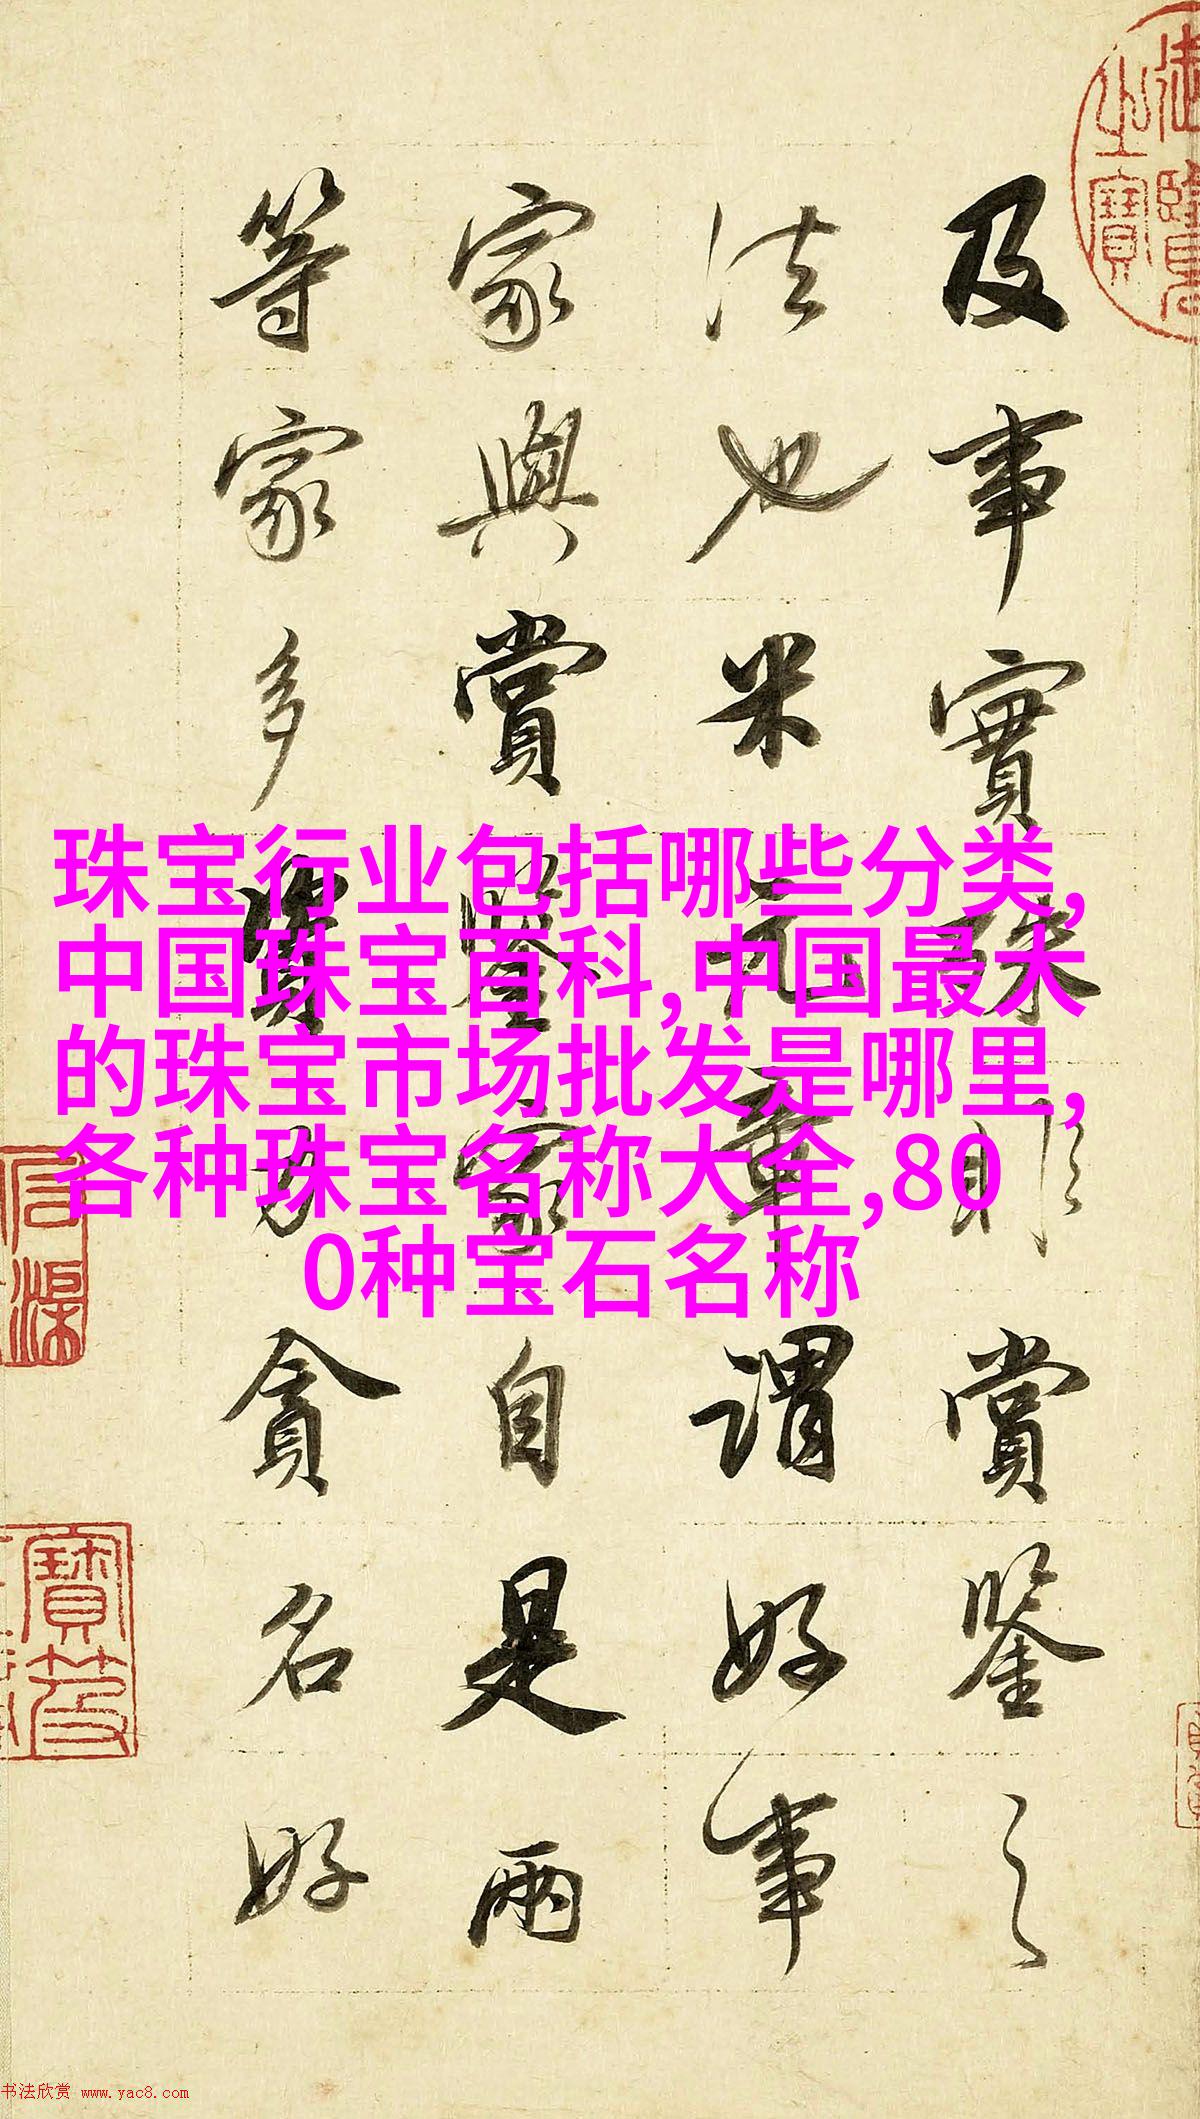 及事實殊則賞鑒之
法也米元章謂好事
家與賞鑒家自是兩
等家多資力貪名好
珠宝行业包括哪些分类,
中国珠宝百科,中国最大
的珠宝市场批发是哪里,
各种珠宝名称大全,80
0种宝石名称
御覽之寶
书法欣赏 www.yac8.com